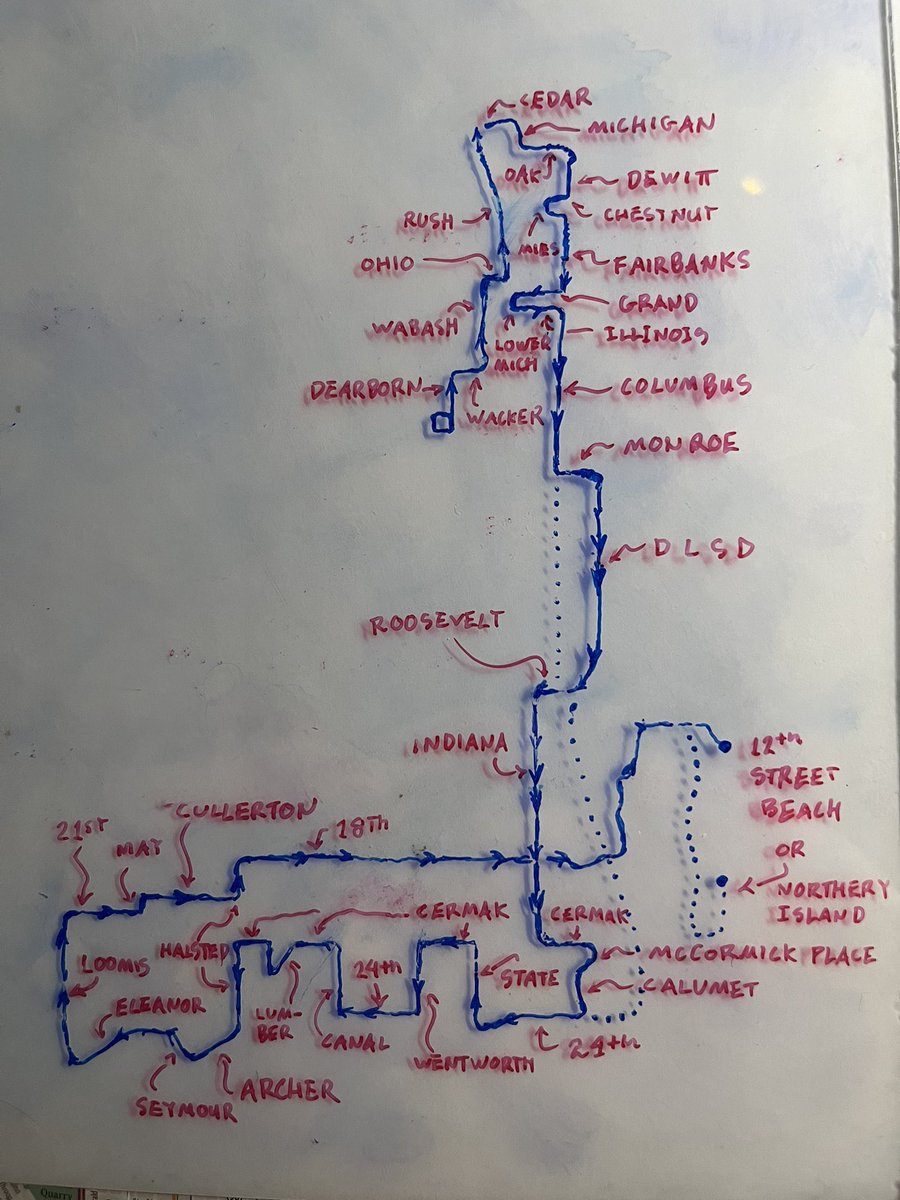 CEDAR
MICHIGAN
OAK
DEWITT
RUSH
CHESTNUT
MIES
OHIO
FAIRBANKS
GRAND
WABASH
LOWER
MICH
ILLINOIS
DEARBORN
COLUMBUS
WACKER
MONROE
DLSD
ROOSEVELT
INDIANA
12TH
STREET
BEACH
OR
NORTHERY
ISLAND
CULLERTON
18TH
21ST
MAY
CERMAK
CERMAK
HALSTED
MCCORMICK PLACE
LOOMIS
24th
STATE
CALUMET
ELEANOR
LUM-
BER
CANAL
24th
WENTWORTH
ARCHER
SEYMOUR
Quarry